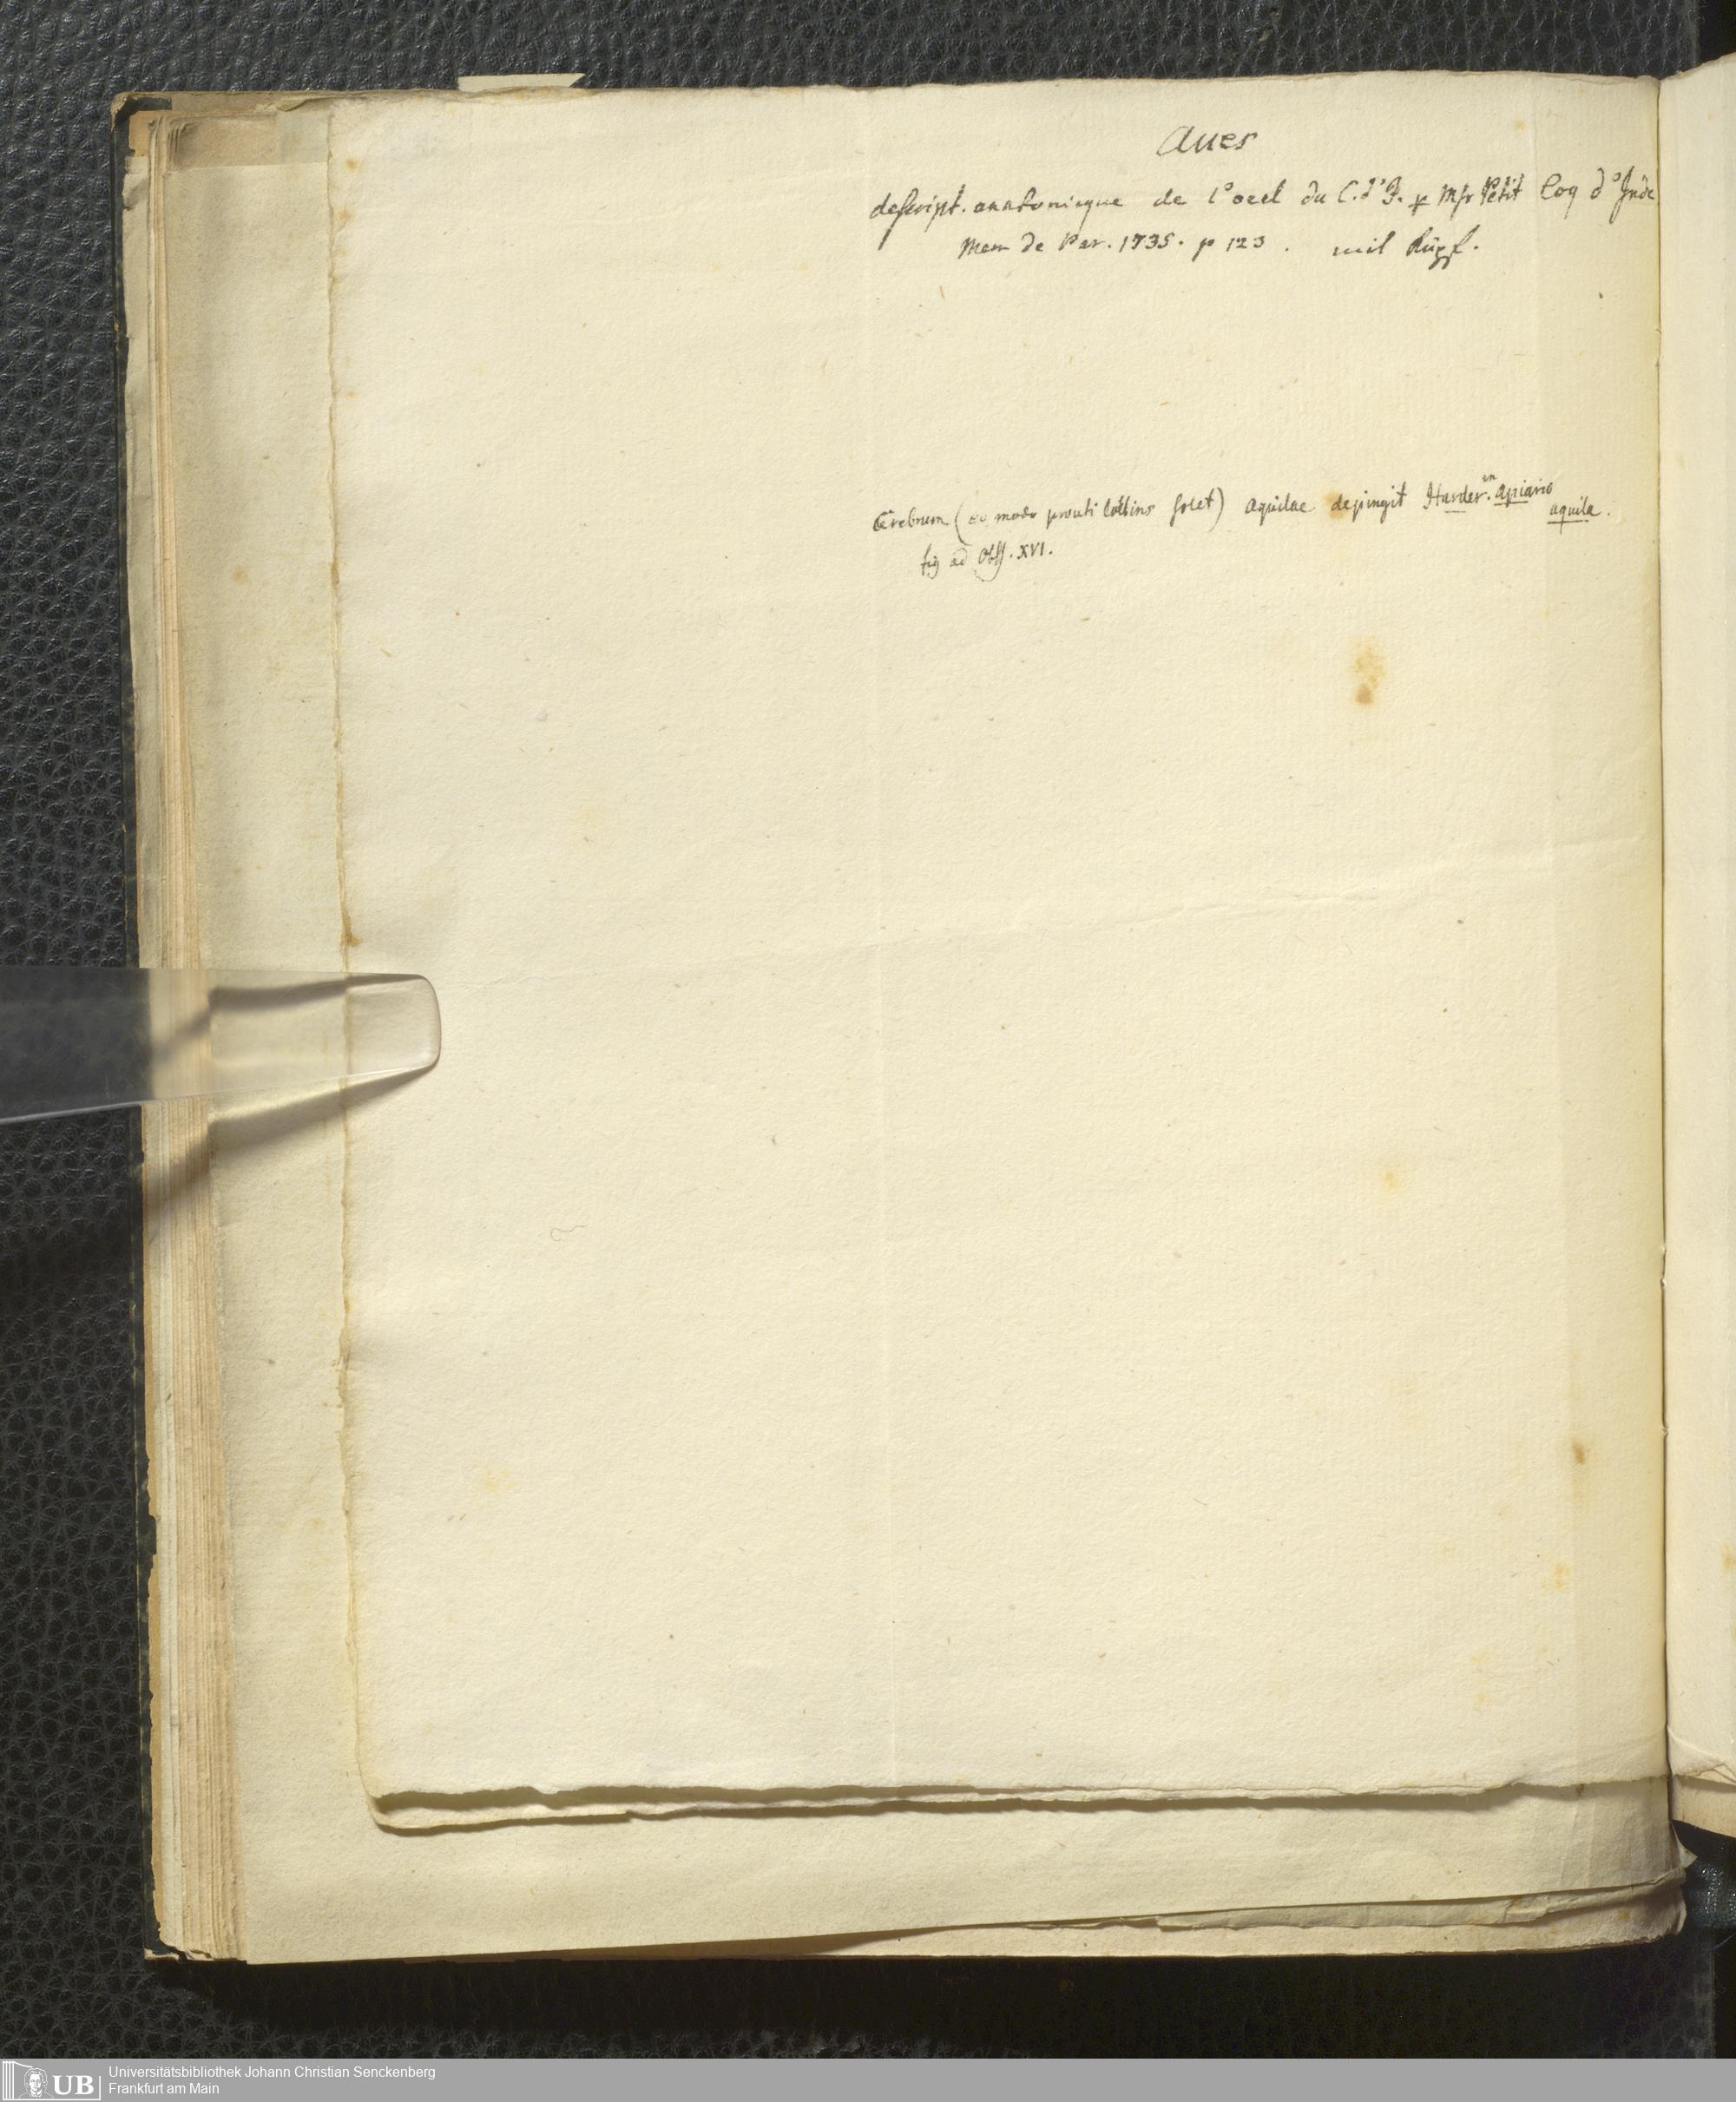 Aues
descript. anatomique de l'oeil du C. d'I. p Msr Petit Coq d'Inde
Mem de Par. 1735. p 123. mit Kupf.
Cerebrum (eo modo prouti Collins solet) aquilae depingit Harder. in apiario
aquila.
fig ad Obss. XVI.
UB Universitätsbibliothek Johann Christian Senckenberg
Frankfurt am Main